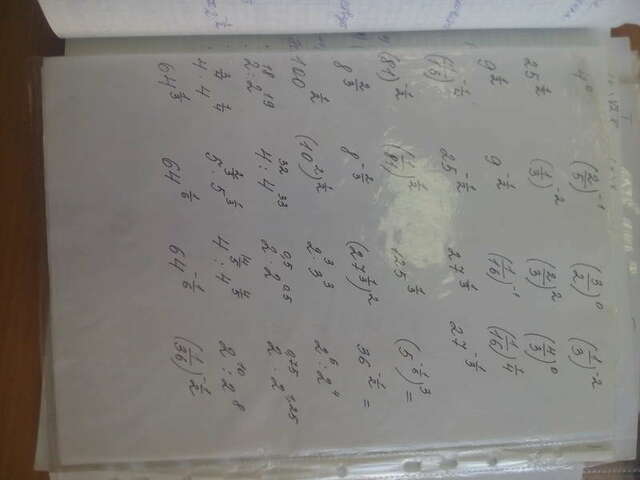 4⁰ (2/5)⁻¹ (3/2)⁰ (1/3)⁻²
25^(1/2) (1/3)⁻² (2/3)² (4/3)⁰
9^(1/2) 9^(-1/2) (1/16)⁻¹ (1/16)^(1/4)
25^(-1/2) 27^(1/3) 27^(-1/3)
(81)^(-1/2) (1/81)^(1/2) 125^(1/3) (5^(-1/6))³ =
8^(2/3) 8^(-2/3) (27^(1/3))² 36^(-1/2) =
100^(1/2) (10²)^(1/2) 2³·3³ 2⁶:2⁴
2¹⁸:2¹⁹ 4³²:4³³ 2^(0,5)·2^(0,5) 2^(0,75)·2^(1,25)
4^(3/4)·4^(1/4) 5^(2/3)·5^(1/3) 4^(14/5):4^(4/5) 2¹⁰:2⁸
64^(1/3) 64^(1/6) 64^(-1/6) (1/36)^(-1/2)